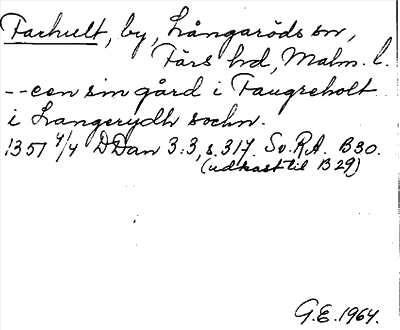 Farhult, by, Långaröds sn,
Färs hd, Malm. l.
--een sin gård i Faugreholt
i Langerydh sochn.
1351 4/4 DDan 3:3, s. 317. Sv.R.A. B30.
(udkast til B29)
G.E. 1964.